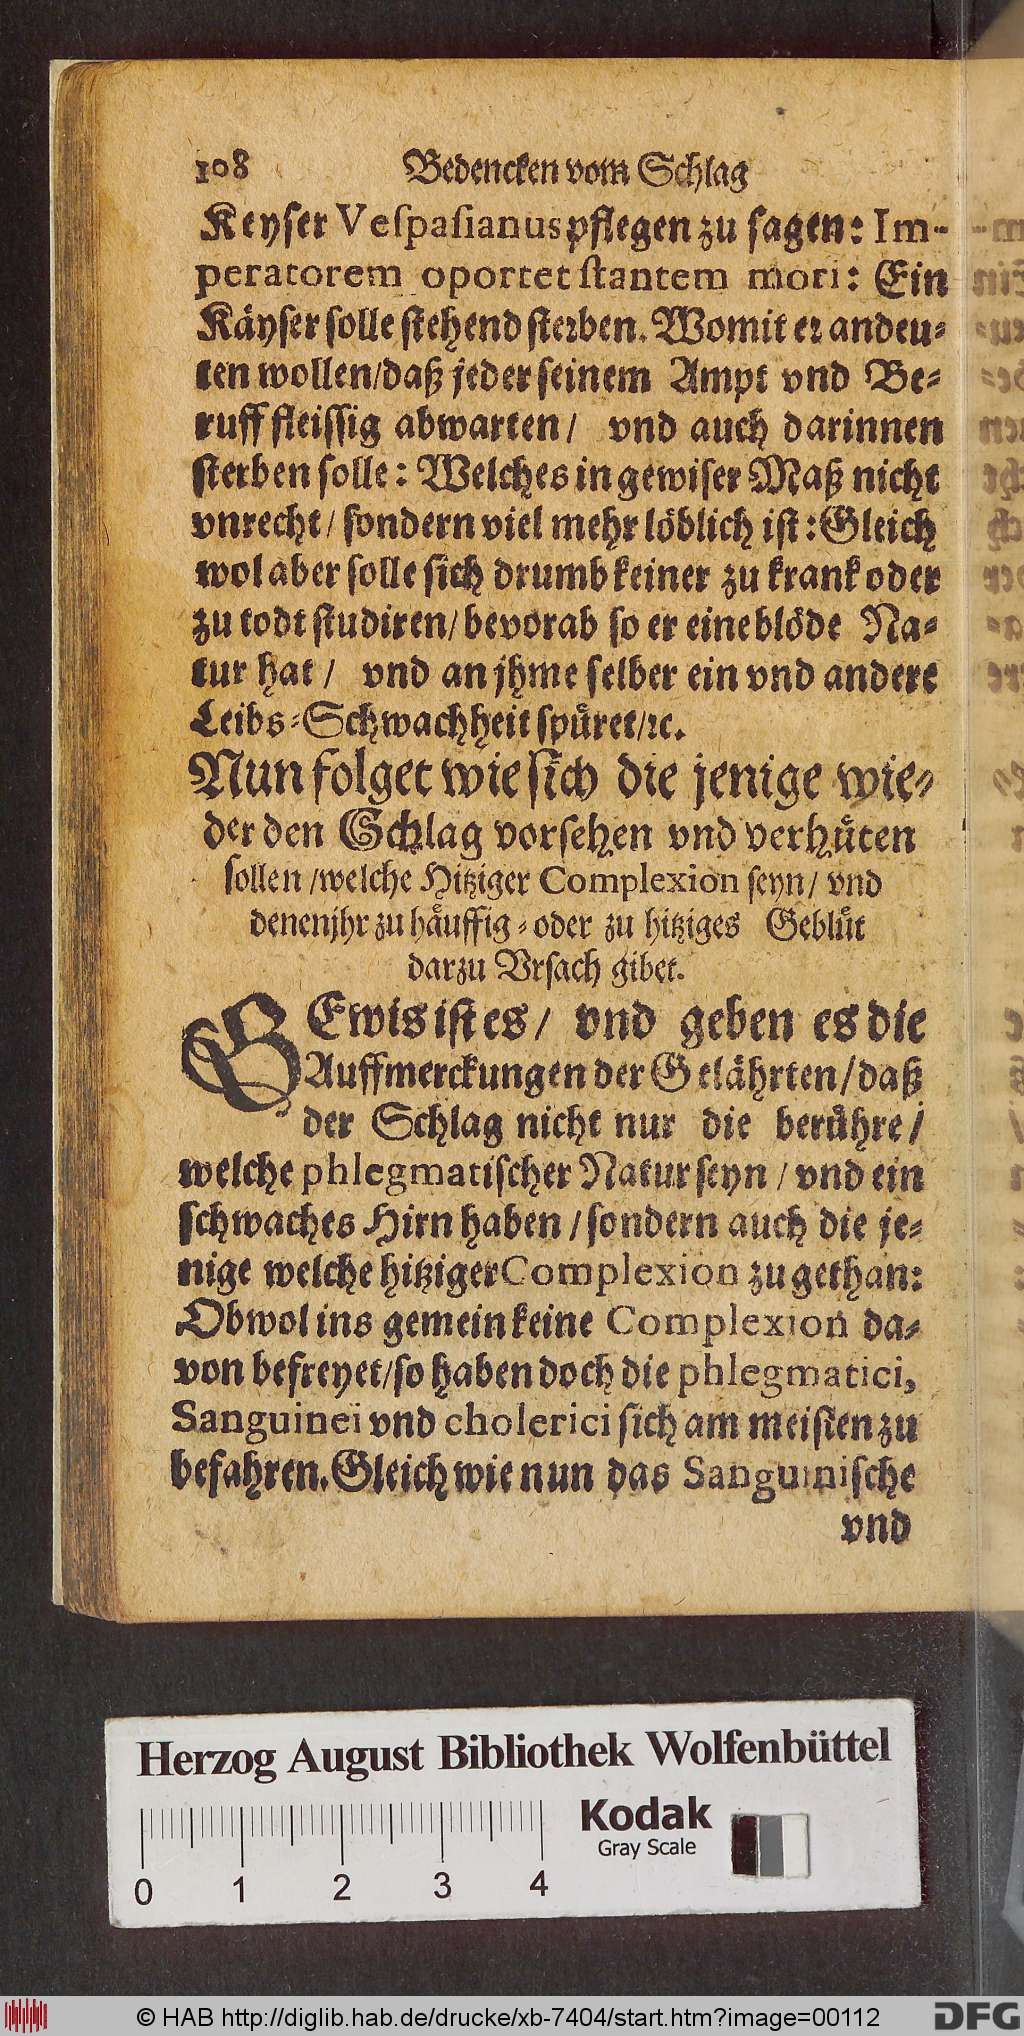 108 Bedencken vom Schlag
Keyser Veſpaſianus pflegen zu ſagen: Im-
peratorem oportet ſtantem mori: Ein
Käyſer ſolle ſtehend ſterben. Womit er andeu-
ten wollen/daß jeder ſeinem Ampt vnd Be-
ruff fleiſſig abwarten/ vnd auch darinnen
ſterben ſolle: Welches in gewiſer Maß nicht
vnrecht/ ſondern viel mehr löblich iſt: Gleich
wol aber ſolle ſich drumb keiner zu krank oder
zu todt ſtudiren/ bevorab ſo er eine blöde Na-
tur hat/ vnd an jhme ſelber ein vnd andere
Leibs-Schwachheit ſpüret/ꝛc.
Nun folget wie ſich die jenige wie-
der den Schlag vorſehen vnd verhüten
ſollen/welche Hitziger Complexion ſeyn/ vnd
denen jhr zu häuffig- oder zu hitziges Geblüt
darzu Vrſach gibet.
GEwis iſt es/ vnd geben es die
Auffmerckungen der Gelährten/daß
der Schlag nicht nur die berühre/
welche phlegmatiſcher Natur ſeyn/ vnd ein
ſchwaches Hirn haben/ſondern auch die je-
nige welche hitziger Complexion zu gethan:
Obwol ins gemein keine Complexion da-
von befreyet/ſo haben doch die phlegmatici,
Sanguinei vnd cholerici ſich am meiſten zu
befahren. Gleich wie nun das Sanguiniſche
vnd
Herzog August Bibliothek Wolfenbüttel
Kodak
Gray Scale
0 1 2 3 4
© HAB http://diglib.hab.de/drucke/xb-7404/start.htm?image=00112
DFG